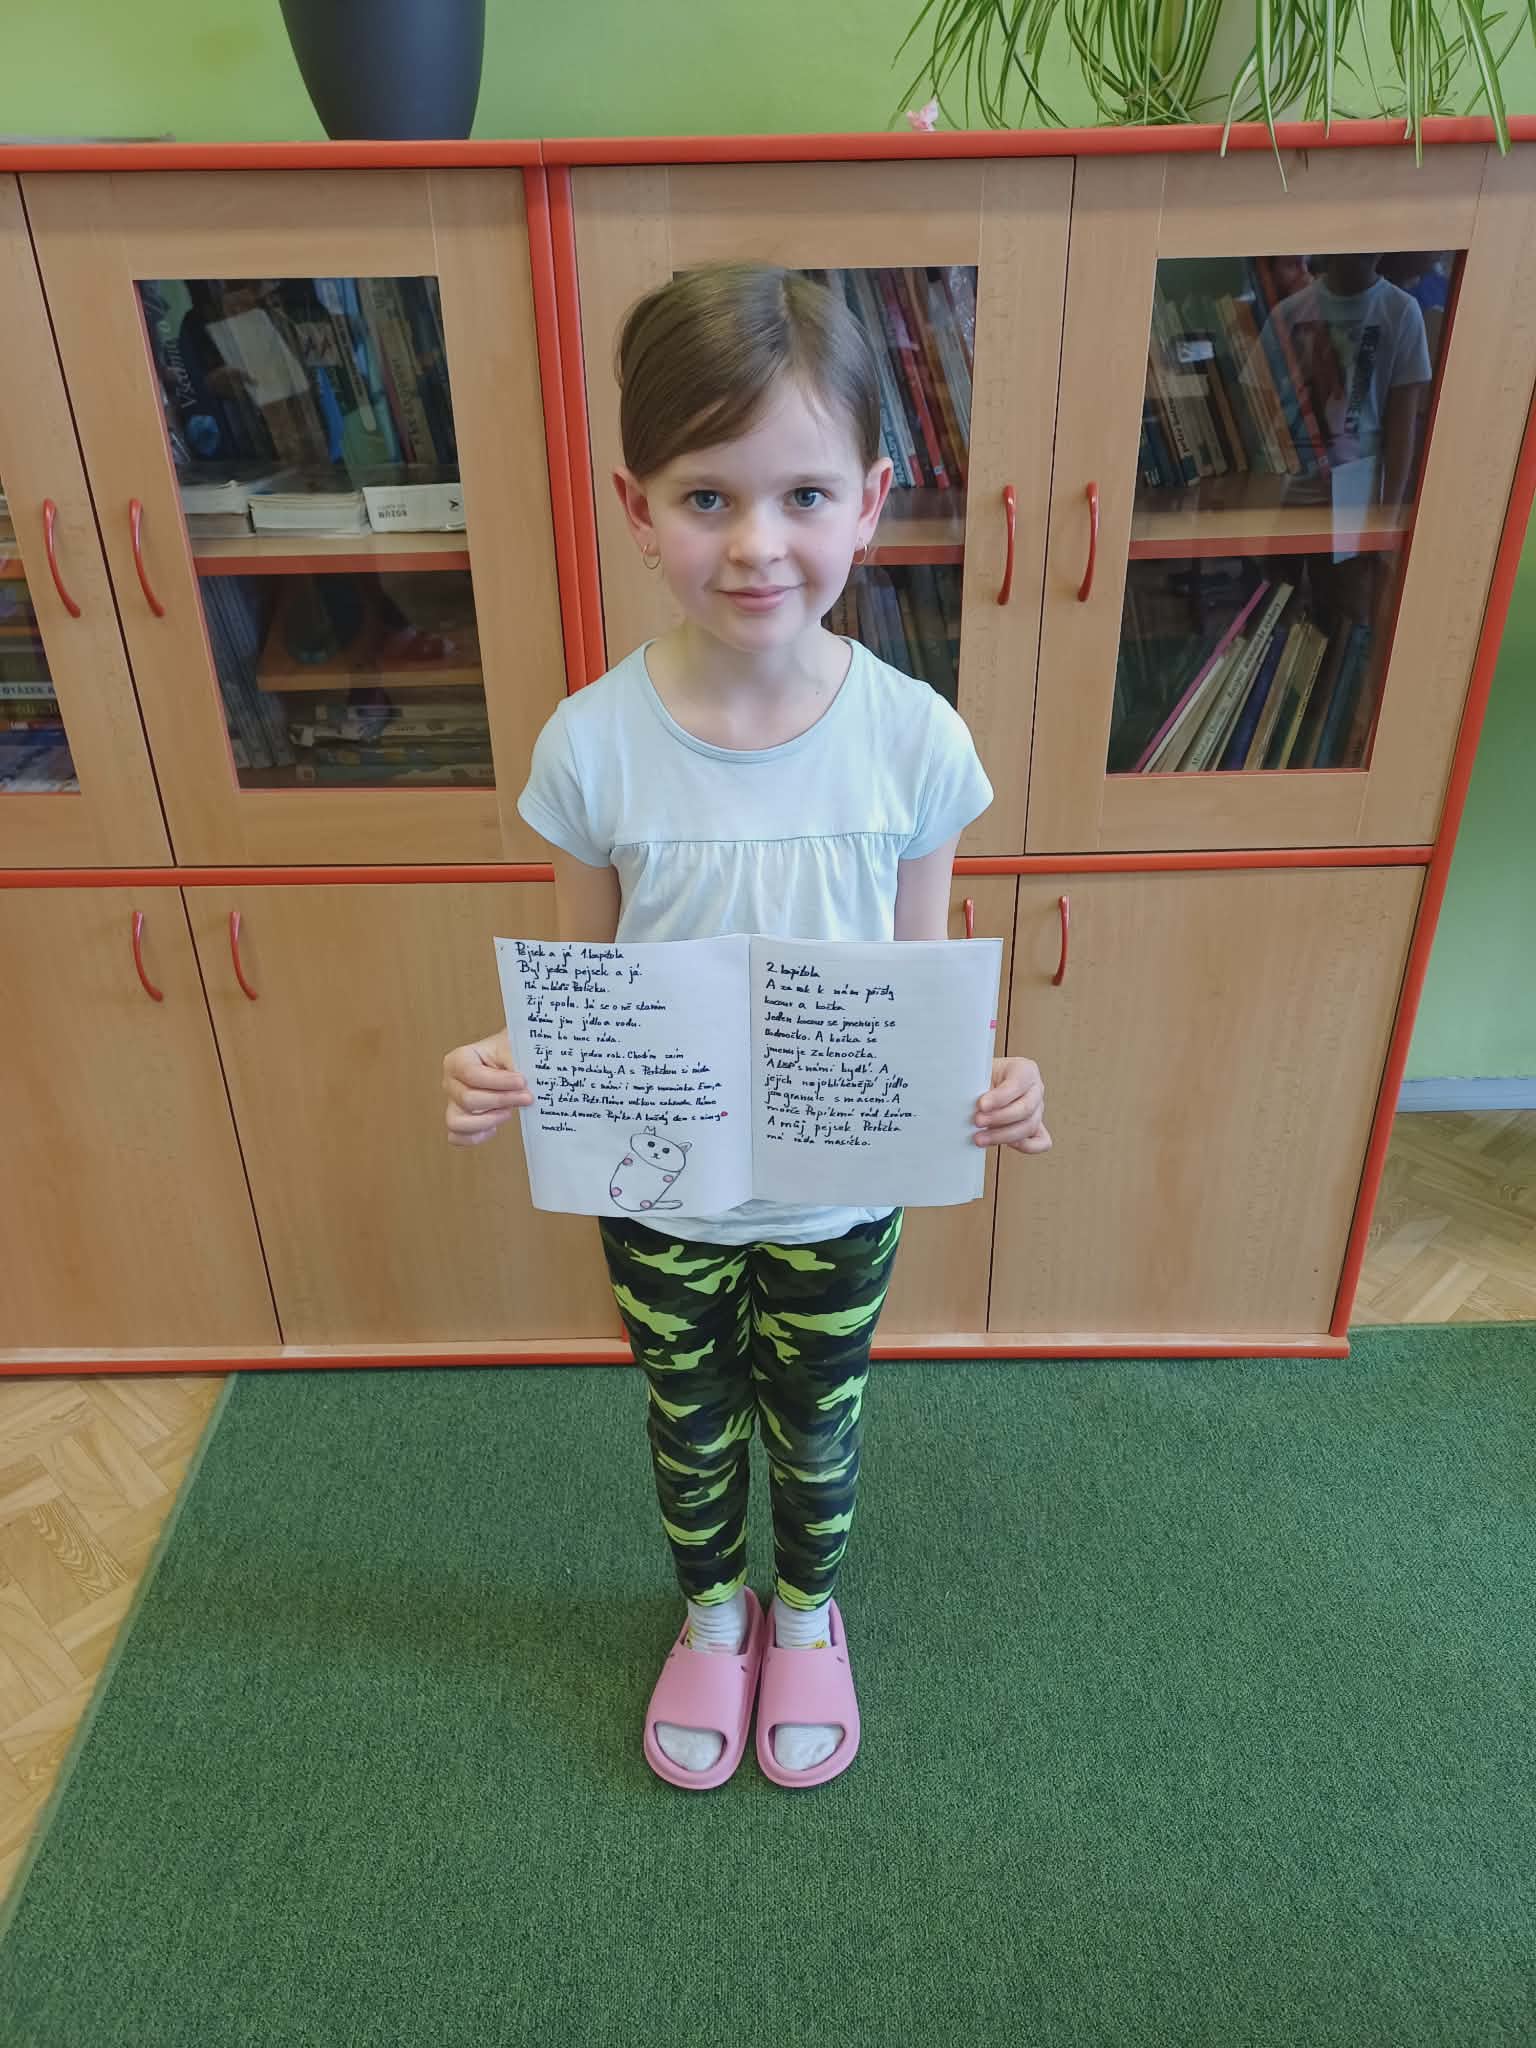 Pejsek a já 1. kapitola
Byl jeden pejsek a já.
Má méďo Perličku.
Žijí spolu. Já se o ně starám
dávám jim jídlo a vodu.
Mám ho moc ráda.
Žije už jeden rok. Chodím s ním
ráda na procházky. A s Perličkou si ráda
hraji. Bydlí s námi i moje maminka Eva, a
můj táta Petr. Máme velkou zahradu. Máme
kocoura. A morče Pepíka. A každý den s nimi
mazlím.
2. kapitola
A za rok k nám přišly
kocour a kočka
Jeden kocour se jmenuje se
Modroočko. A kočka se
jmenuje zelenoočka.
A s námi bydlí. A
jejich nejoblíbenější jídlo
jsou granule s masem. A
morče Pepík má rád trávu.
A můj pejsek Perlička
má ráda masíčko.
ROZUM